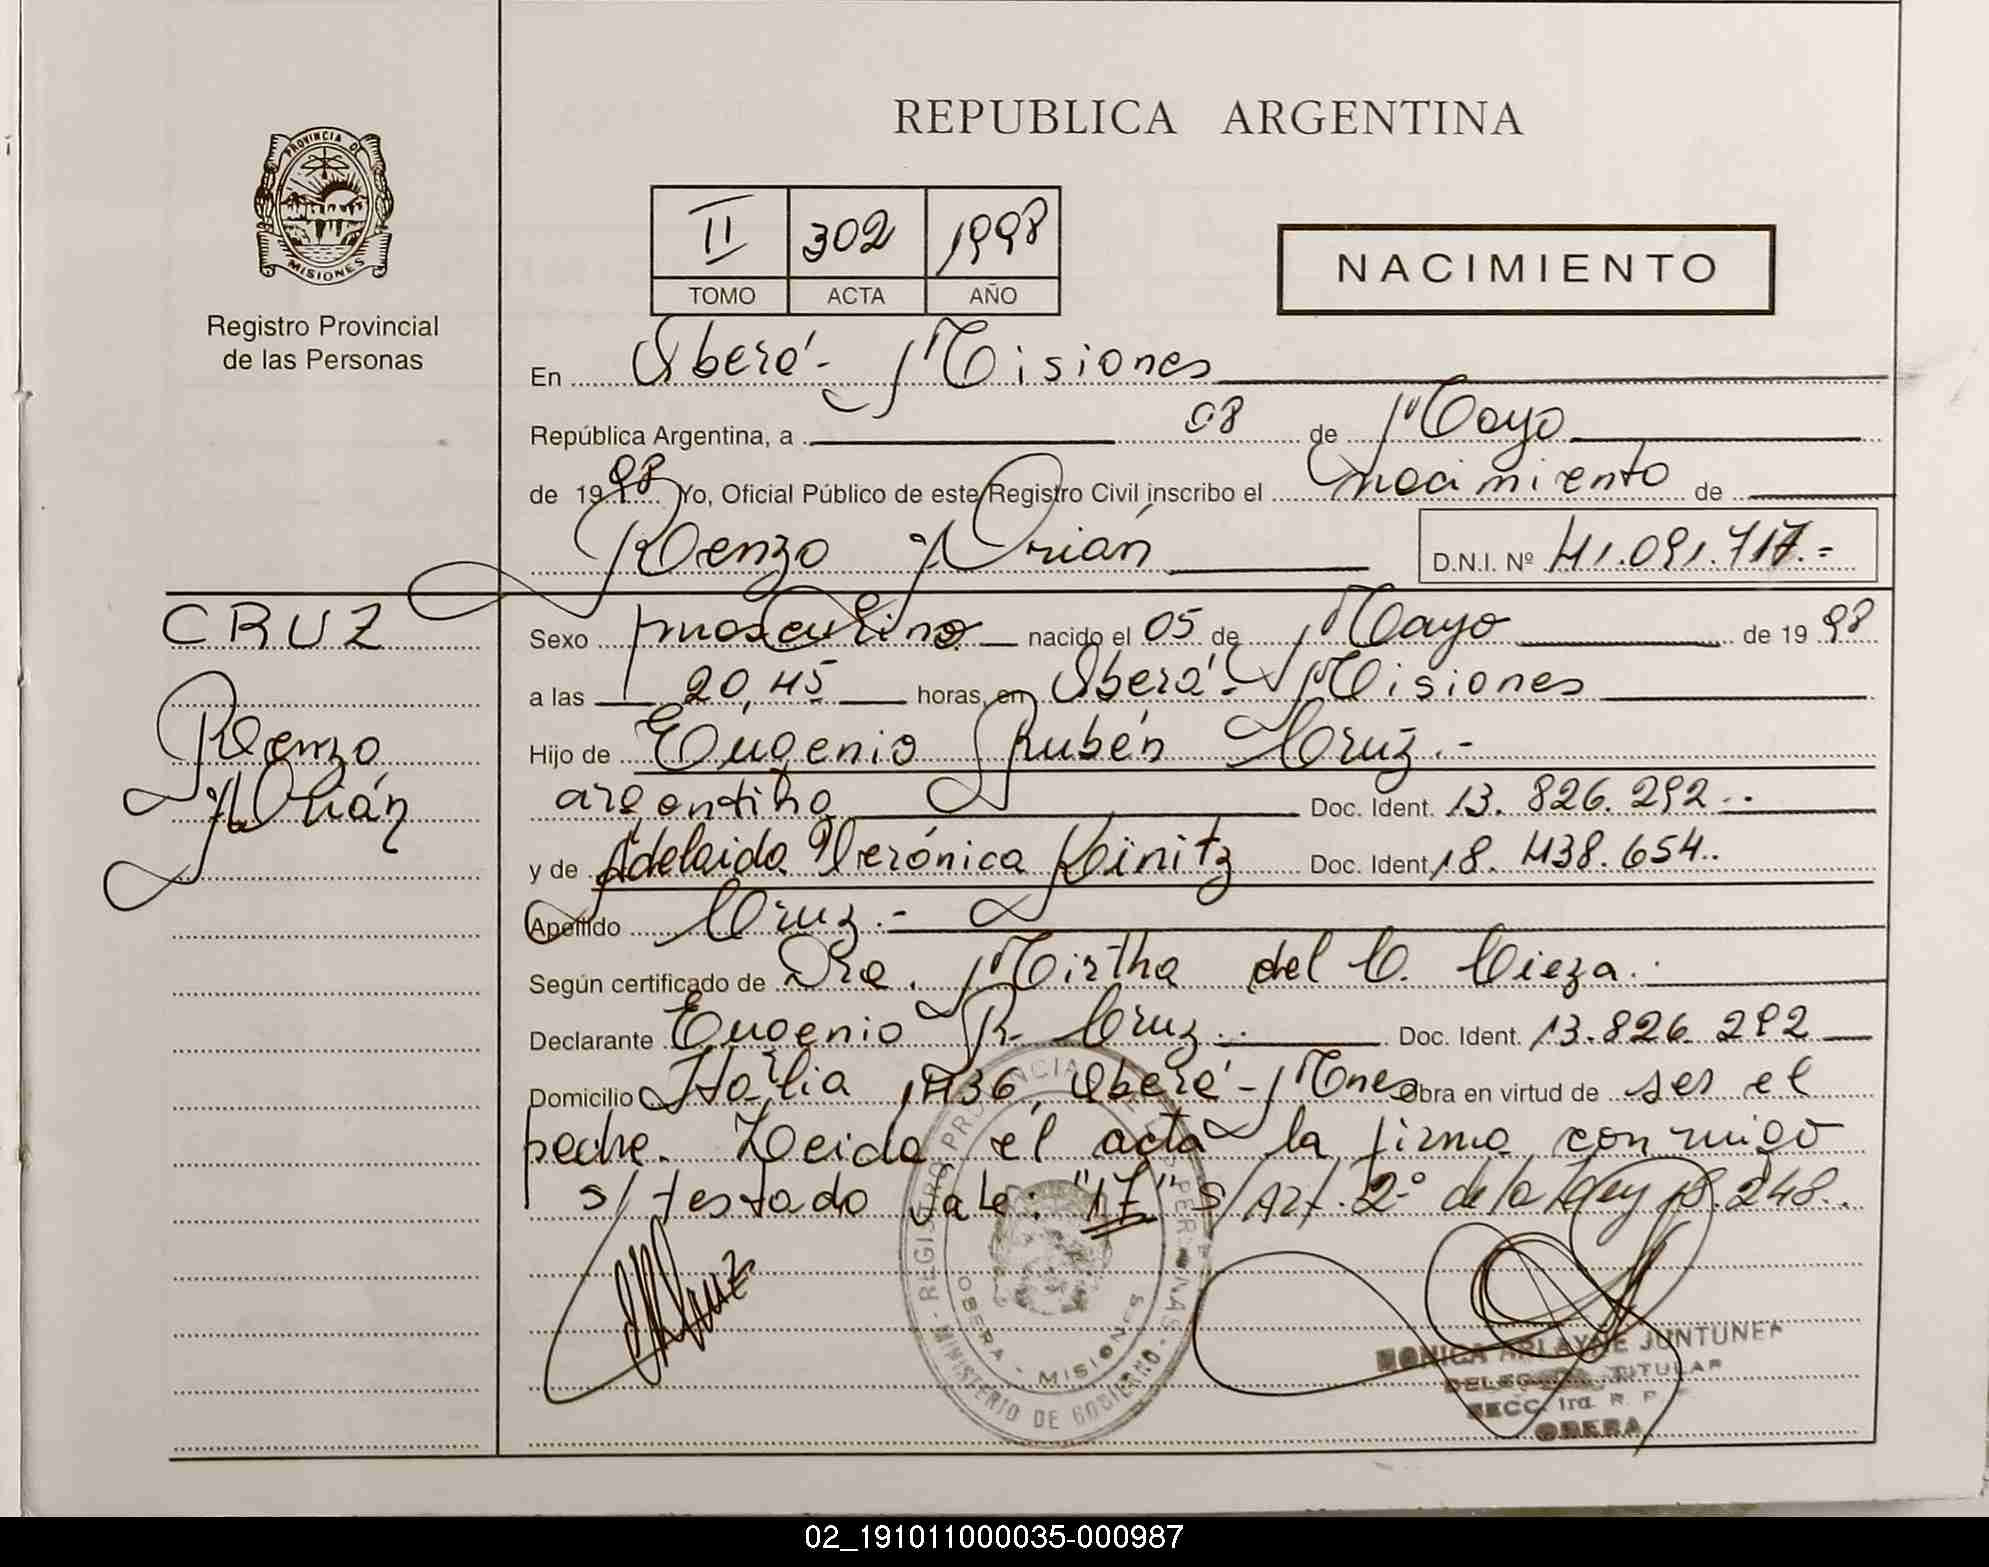 REPUBLICA ARGENTINA
PROVINCIA DE
MISIONES
Registro Provincial
de las Personas
II 302 1998
TOMO ACTA AÑO
NACIMIENTO
En Oberá - Misiones
República Argentina, a 08 de Mayo
de 1998 Yo, Oficial Público de este Registro Civil inscribo el nacimiento de
Renzo Adrián D.N.I. Nº 41.091.717.-
CRUZ
Renzo
Adrián
Sexo masculino nacido el 05 de Mayo de 1998
a las 20,45 horas, en Oberá - Misiones
Hijo de Eugenio Rubén Cruz.-
argentino Doc. Ident. 13.826.292..
y de Adelaida Verónica Keinitz Doc. Ident. 18.438.654..
Apellido Cruz.-
Según certificado de Dra. Mirtha del C. Cieza.
Declarante Eugenio R. Cruz.. Doc. Ident. 13.826.292
Domicilio Italia 1436, Oberá - Mnes Obra en virtud de ser el
padre. Leida el acta la firma conmigo
s/testado Vale: "17" s/Art. 2º de la Ley 18.248..
REGISTRO PROVINCIAL DE LAS PERSONAS - MINISTERIO DE GOBIERNO -
OBERA - MISIONES
MONICA JUNTUNEN
TITULAR
SECC. 1ra. R. P.
OBERA
02_191011000035-000987